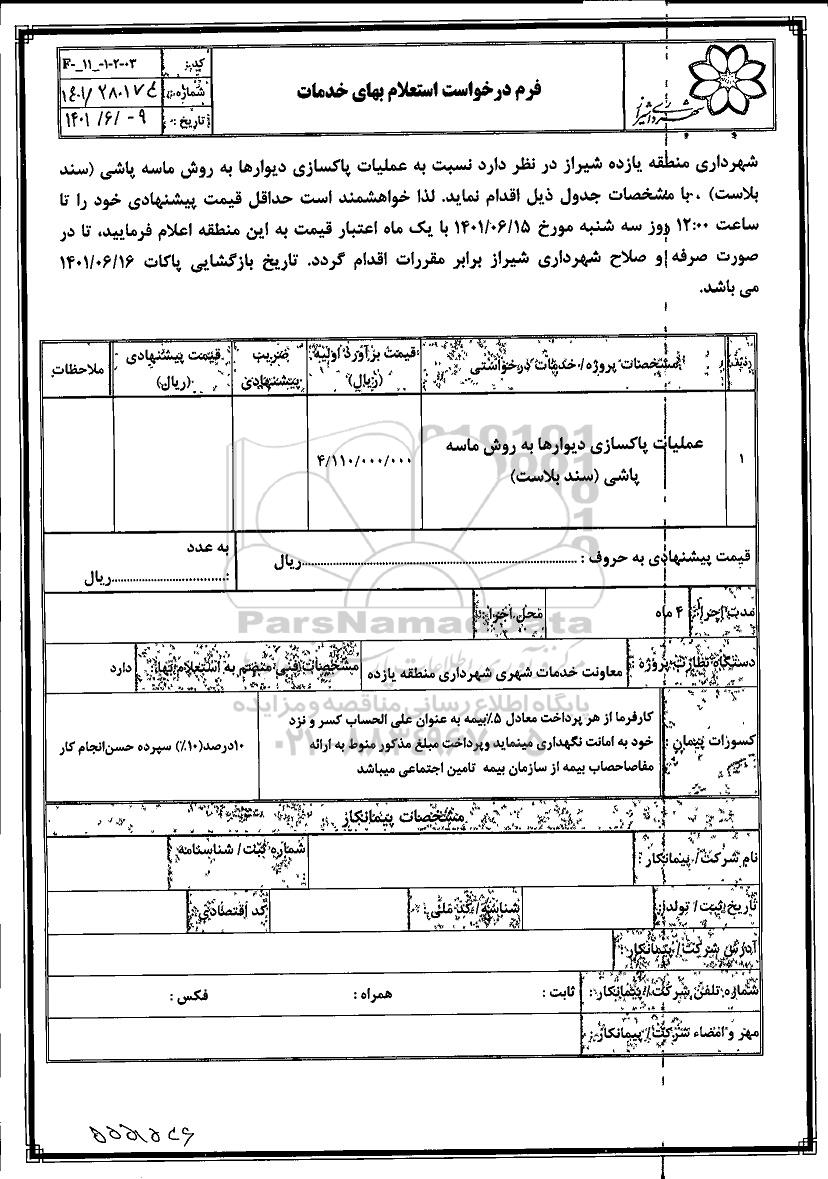 شهرداری شیراز
فرم درخواست استعلام بهای خدمات
کد: F-_۱۱_-۱-۲-۰۳
شماره: ۱۴۰۱/۲۸۰۱۷۴
تاریخ: ۱۴۰۱/۶/۰۹
شهرداری منطقه یازده شیراز در نظر دارد نسبت به عملیات پاکسازی دیوارها به روش ماسه پاشی (سند
بلاست) ، با مشخصات جدول ذیل اقدام نماید. لذا خواهشمند است حداقل قیمت پیشنهادی خود را تا
ساعت ۱۲:۰۰ روز سه شنبه مورخ ۱۴۰۱/۰۶/۱۵ با یک ماه اعتبار قیمت به این منطقه اعلام فرمایید، تا در
صورت صرفه و صلاح شهرداری شیراز برابر مقررات اقدام گردد. تاریخ بازگشایی پاکات ۱۴۰۱/۰۶/۱۶
می باشد.
ردیف مشخصات پروژه / خدمات درخواستی قیمت برآورد اولیه (ریال) ضریب پیشنهادی قیمت پیشنهادی (ریال) ملاحظات
۱ عملیات پاکسازی دیوارها به روش ماسه
پاشی (سند بلاست) ۴/۱۱۰/۰۰۰/۰۰۰
قیمت پیشنهادی به حروف : ............ریال به عدد
:............ریال
مدت اجرا: ۴ ماه محل اجرا:
دستگاه نظارت پروژه : معاونت خدمات شهری شهرداری منطقه یازده مشخصات فنی منضم به استعلام بها: دارد
کسورات پیمان : کارفرما از هر پرداخت معادل ۵٪بیمه به عنوان علی الحساب کسر و نزد
خود به امانت نگهداری مینماید وپرداخت مبلغ مذکور منوط به ارائه
مفاصاحصاب بیمه از سازمان بیمه تامین اجتماعی میباشد
۱۰درصد(۱۰٪) سپرده حسن‌انجام کار
مشخصات پیمانکار
نام شرکت/ پیمانکار : شماره ثبت/ شناسنامه
تاریخ ثبت/ تولد: شناسه/ کد ملی : کد اقتصادی :
آدرس شرکت/ پیمانکار:
شماره تلفن شرکت/ پیمانکار : ثابت : همراه : فکس :
مهر و امضاء شرکت/ پیمانکار:
ParsNamadData
پایگاه اطلاع رسانی مناقصه و مزایده